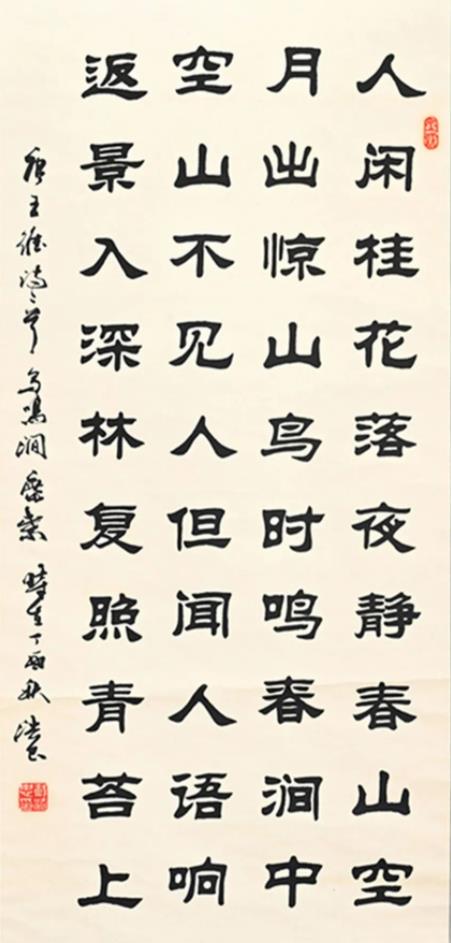 人闲桂花落夜静春山空
月出惊山鸟时鸣春涧中
空山不见人但闻人语响
返景入深林复照青苔上
唐王维诗二首鸟鸣涧鹿柴 時在丁酉秋